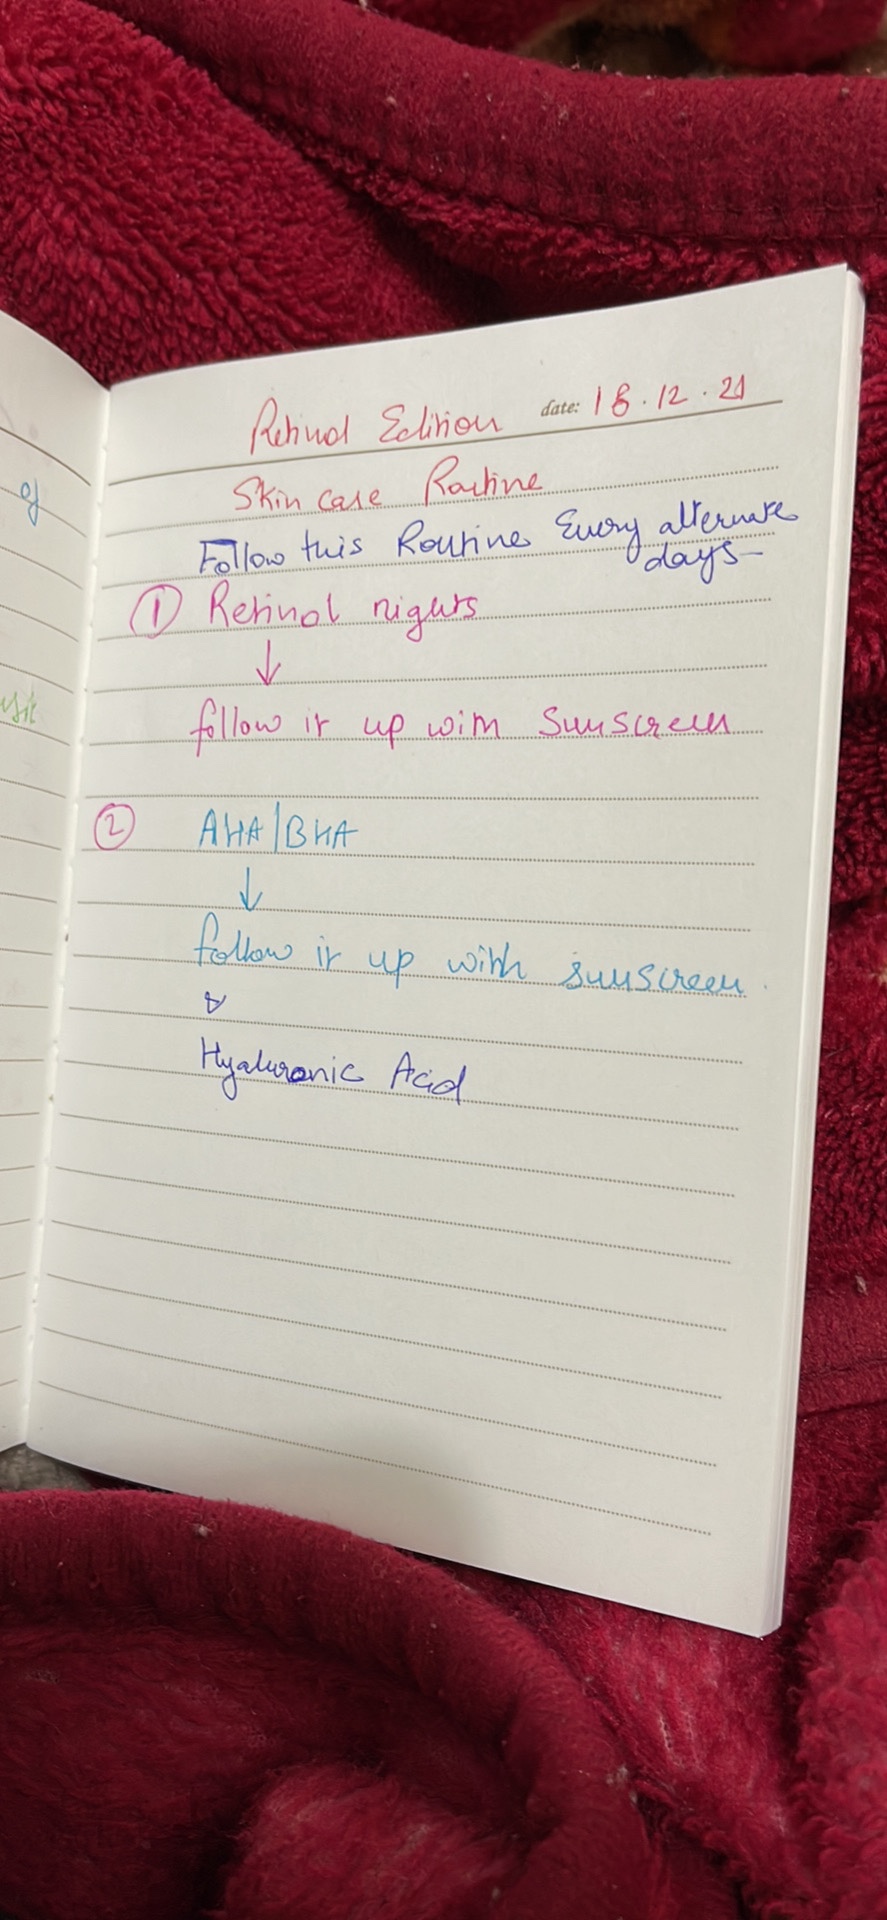 Retinol Edition date: 18.12.21
Skin care Routine
Follow this Routine Every alternate
days-
① Retinol nights
↓
follow it up with Sunscreen
② AHA/BHA
↓
follow it up with sunscreen.
&
Hyaluronic Acid
of